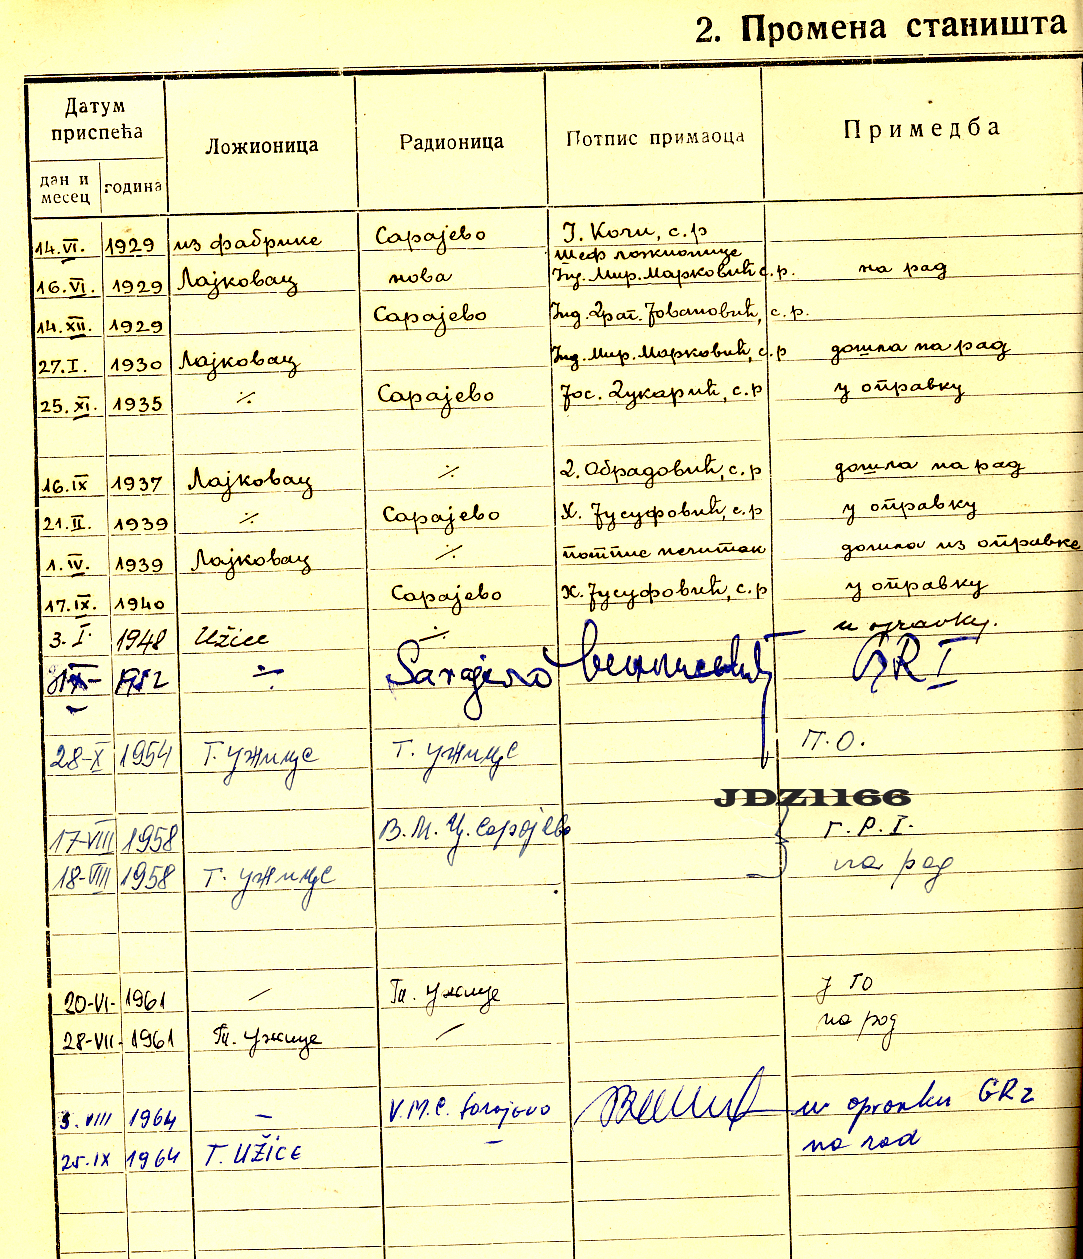 2. Промена станишта
Датум приспећа
Ложионица
Радионица
Потпис примаоца
Примедба
дан и месец
година
14.VI. 1929 из фабрике Сарајево Ј. Кочи, с.р
шеф ложионице
16.VI. 1929 Лајковац нова Инд. Мир. Марковић с.р. на рад
14.XII. 1929 Сарајево Инд. Јовановић, с.р.
27.I. 1930 Лајковац Инд. Мир. Марковић, с.р дошла на рад
25.XI. 1935 ·/· Сарајево Јос. Цукарић, с.р у оправку
16.IX 1937 Лајковац ·/· Обрадовић, с.р дошла на рад
21.II. 1939 ·/· Сарајево Х. Јусуфовић, с.р у оправку
1.IV. 1939 Лајковац ·/· потпис нечитак дошла из оправке
17.IX. 1940 Сарајево Х. Јусуфовић, с.р у оправку
3.I. 1948 Užice ·/·
1952 ·/· Sarajevo GR I
28-X 1954 Т. Ужице Т. Ужице П.О.
JDZ1166
17-VIII 1958 В.М.Ц. Сарајево Г.Р.I.
18-VIII 1958 Т. Ужице на рад
20-VI- 1961 / Тит. Ужице у ТО
28-VII- 1961 Тит. Ужице / на рад
3.VIII 1964 – V.M.C. Sarajevo u opravku GR2
25.IX 1964 T. UŽICE – na rad